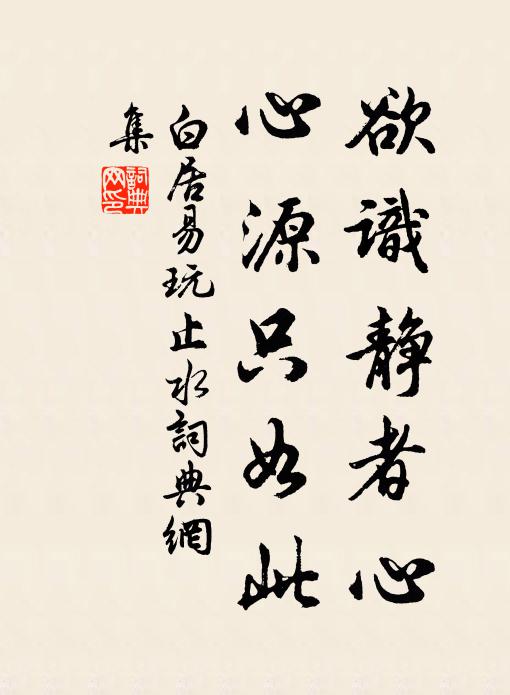 欲識静者心
心源只如此
白居易玩止水詞典網
集
詞典網印